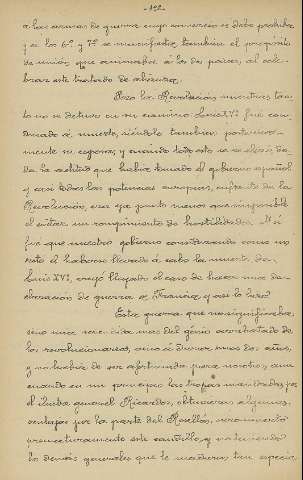 - 192 -
a las armas de guerra cuyo comercio se debe prohibir
y en los 6º y 7º se manifiesta tambien el proposito
de union que animaba á los dos paises, al cele-
brar este tratado de alianza.
Pero la Revolucion mientras tan-
to no se detuvo en su camino. Luis XVI fué con-
denado á muerte, siéndolo tambien posterior-
mente su esposa; y cuando todo esto no se
da la actitud que habia tomado el gobierno español
y casi todas las potencias europeas, enfrente de la
Revolucion, era ya punto menos que imposible
el evitar un rompimiento de hostilidades. Asi
fué que nuestro gobierno considerando como un
reto el haberse llevado á cabo la muerte de
Luis XVI, creyó llegado el caso de hacer una de-
claracion de guerra á Francia, y asi lo hizo.
Esta guerra que no significaba,
sino una mas del génio acorbatado de
los revolucionarios, duró mas dos años,
y no hubo de ser afortunada para nosotros, aun
cuando en un principio las tropas mandadas por
el ilustre general Ricardos, obtuvieron algunas
ventajas por la parte del Rosellón, pero muerto
prematuramente este caudillo, y no teniendo
los demás generales que le sucedieron tan especia-